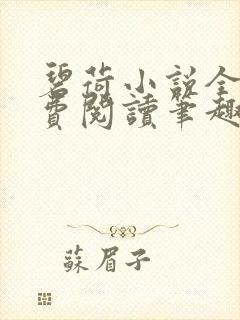 碧荷小説全
費閱讀筆趣
蘇眉子